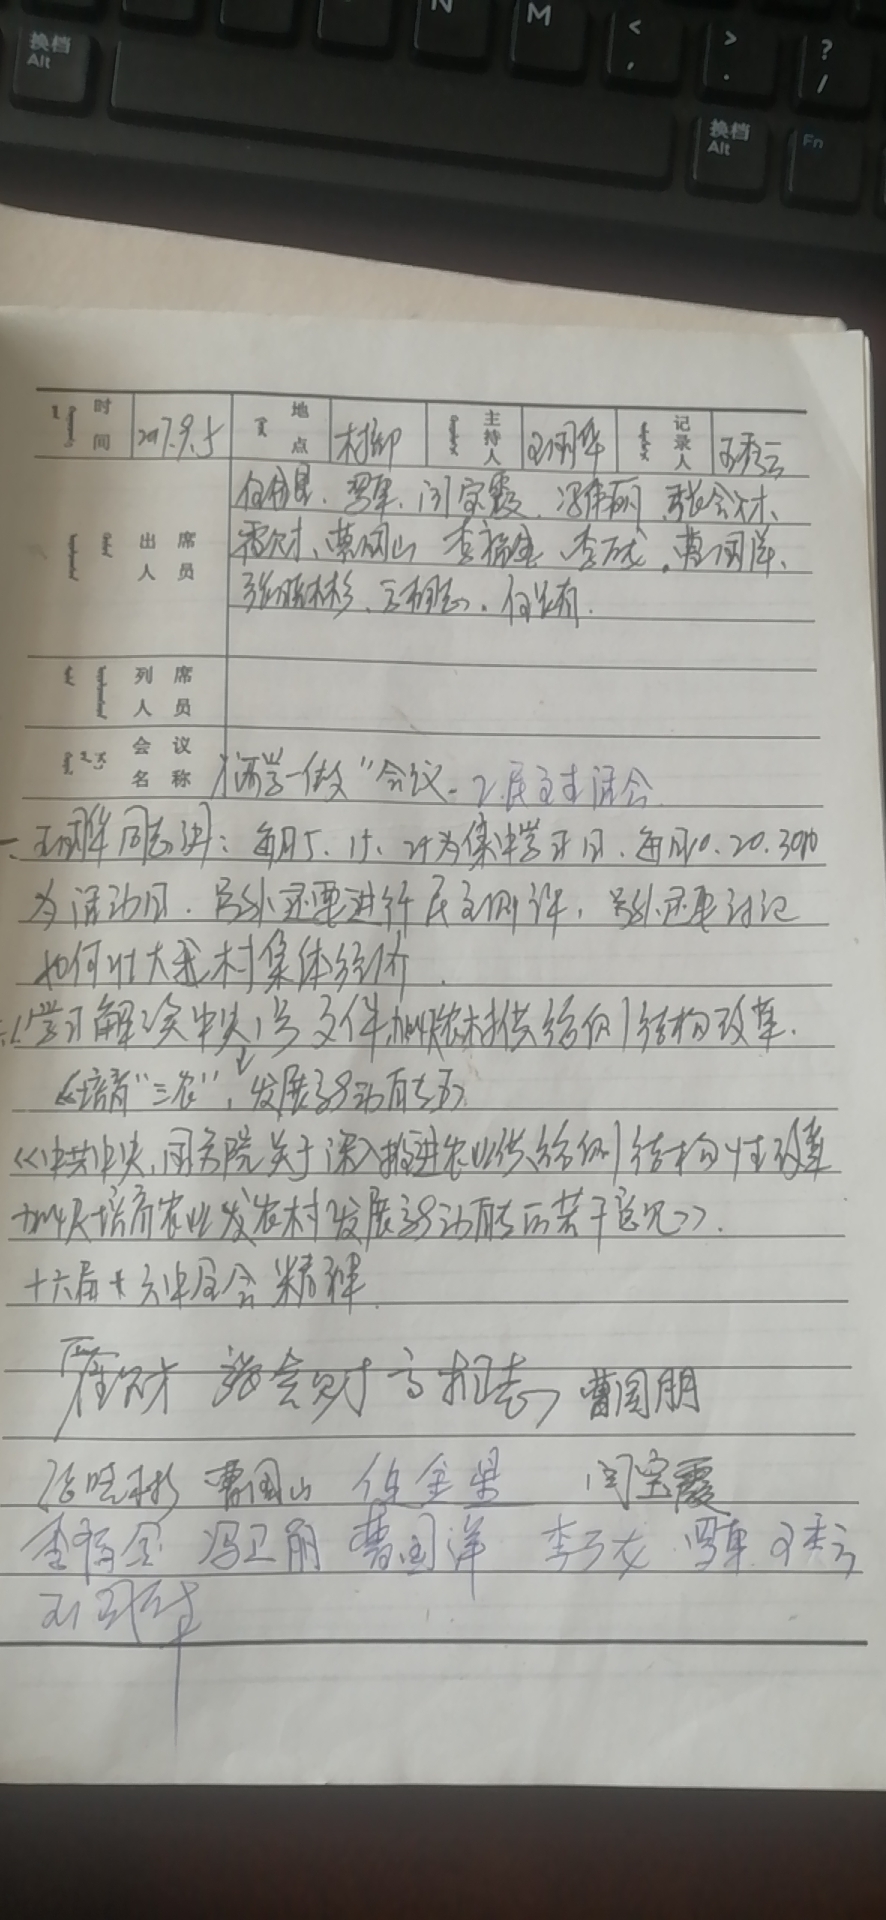 N M < , > . ? /
换档 Alt
换档 Alt Fn
时间 2017.9.5 地点 村部 主持人 王国华 记录人 王秀云
出席人员 罗军、闫宝霞、冯伟丽、张会才、
曹国山 李福金、李万成、曹国洋、
张晓彬、
列席人员
会议名称 "两学一做"会议 2.民主生活会
一、王国华同志讲:每月5、15、25为集中学习日、每月10、20、30日
为活动日、另外还要进行民主测评,另外还要讨论
如何壮大我村集体经济.
二、学习解读中央1号文件加快农村供给侧结构改革.
《培育"三农",发展新动能》
《中共中央、国务院关于深入推进农业供给侧结构性改革
加快培育农业农村发展新动能的若干意见》.
六中全会精神
张会财 曹国朋
张晓彬 曹国山 闫宝霞
李福金 冯卫丽 曹国洋 李万成 罗军 王秀云
王国华